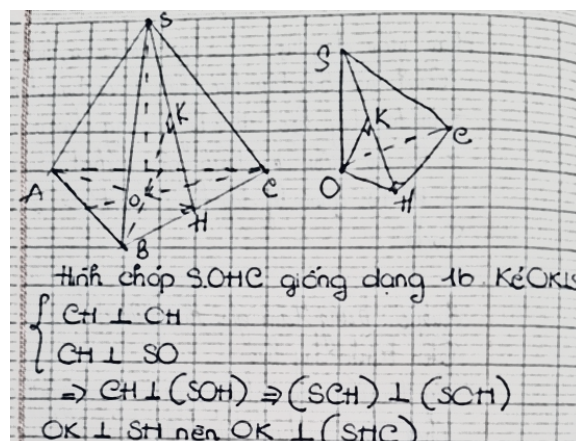 S
S
K
K
C
A
O
C
O
H
H
B
Hình chóp S.OHC giống dạng 1b Kẻ OK⊥S
CH ⊥ CH
CH ⊥ SO
⇒ CH⊥(SOH) ⇒ (SCH) ⊥ (SCH)
OK ⊥ SH nên OK ⊥ (SHC)